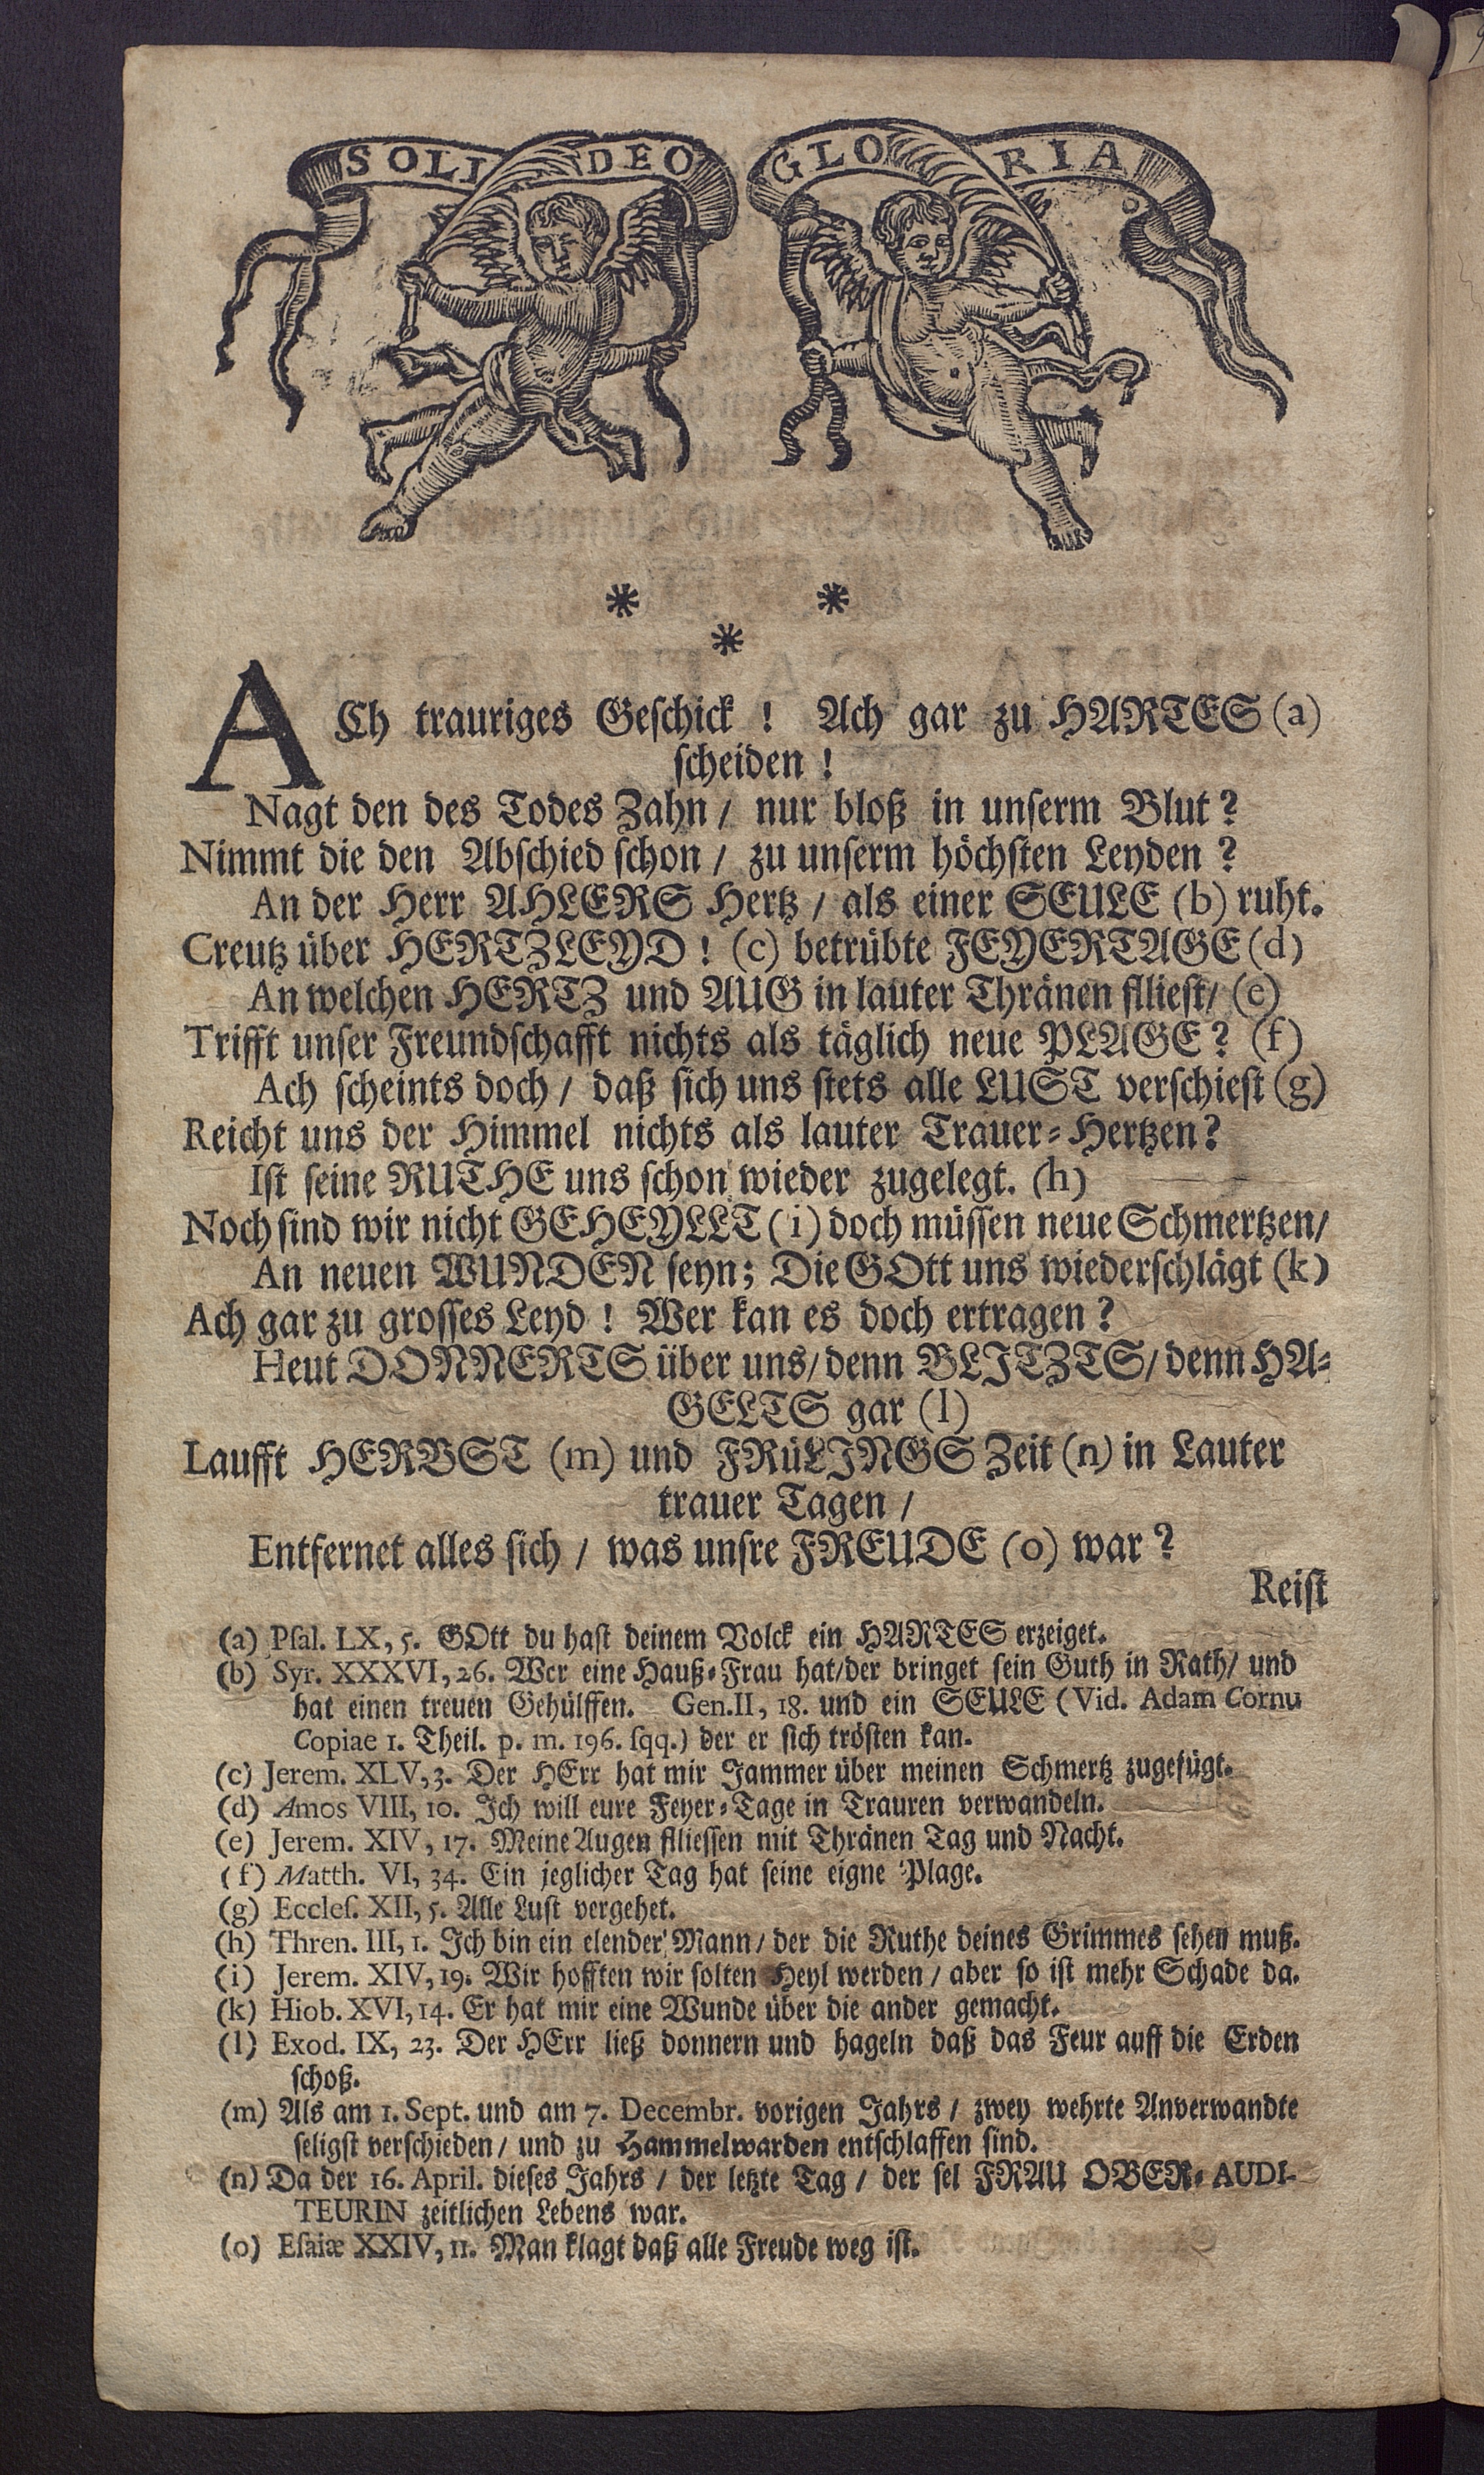 SOLI DEO GLORIA
* *
*
ACh trauriges Geschick ! Ach gar zu HARTES (a)
scheiden !
Nagt den des Todes Zahn / nur bloß in unserm Blut ?
Nimmt die den Abschied schon / zu unserm höchsten Leyden ?
An der Herr AHLERS Hertz / als einer SEULE (b) ruht.
Creutz über HERTZLEYD ! (c) betrübte FEYERTAGE (d)
An welchen HERTZ und AUG in lauter Thränen flliest/ (e)
Trifft unser Freundschafft nichts als täglich neue PLAGE ? (f)
Ach scheints doch / daß sich uns stets alle LUST verschiest (g)
Reicht uns der Himmel nichts als lauter Trauer-Hertzen?
Ist seine RUTHE uns schon wieder zugelegt. (h)
Noch sind wir nicht GEHEYLLT (i) doch müssen neue Schmertzen/
An neuen WUNDEN seyn; Die GOtt uns wiederschlägt (k)
Ach gar zu grosses Leyd ! Wer kan es doch ertragen ?
Heut DONNERTS über uns/ denn BLITZTS/ denn HA-
GELTS gar (l)
Laufft HERBST (m) und FRüLINGS Zeit (n) in Lauter
trauer Tagen /
Entfernet alles sich / was unsre FREUDE (o) war ?
Reist
(a) Psal. LX, 5. GOtt du hast deinem Volck ein HARTES erzeiget.
(b) Syr. XXXVI, 26. Wer eine Hauß-Frau hat/der bringet sein Guth in Rath/ und
hat einen treuen Gehülffen. Gen.II, 18. und ein SEULE (Vid. Adam Cornu
Copiae 1. Theil. p. m. 196. sqq.) der er sich trösten kan.
(c) Jerem. XLV, 3. Der HErr hat mir Jammer über meinen Schmertz zugefügt.
(d) Amos VIII, 10. Ich will eure Feyer-Tage in Trauren verwandeln.
(e) Jerem. XIV, 17. Meine Augen flliessen mit Thränen Tag und Nacht.
(f) Matth. VI, 34. Ein jeglicher Tag hat seine eigne Plage.
(g) Eccles. XII, 5. Alle Lust vergehet.
(h) Thren. III, 1. Ich bin ein elender Mann/ der die Ruthe deines Grimmes sehen muß.
(i) Jerem. XIV, 19. Wir hofften wir solten Heyl werden / aber so ist mehr Schade da.
(k) Hiob. XVI, 14. Er hat mir eine Wunde über die ander gemacht.
(l) Exod. IX, 23. Der HErr ließ donnern und hageln daß das Feur auff die Erden
schoß.
(m) Als am 1. Sept. und am 7. Decembr. vorigen Jahrs / zwey wehrte Anverwandte
seligst verschieden/ und zu Hammelwarden entschlaffen sind.
(n) Da der 16. April. dieses Jahrs / der letzte Tag / der sel FRAU OBER-AUDI-
TEURIN zeitlichen Lebens war.
(o) Esaiæ XXIV, 11. Man klagt daß alle Freude weg ist.